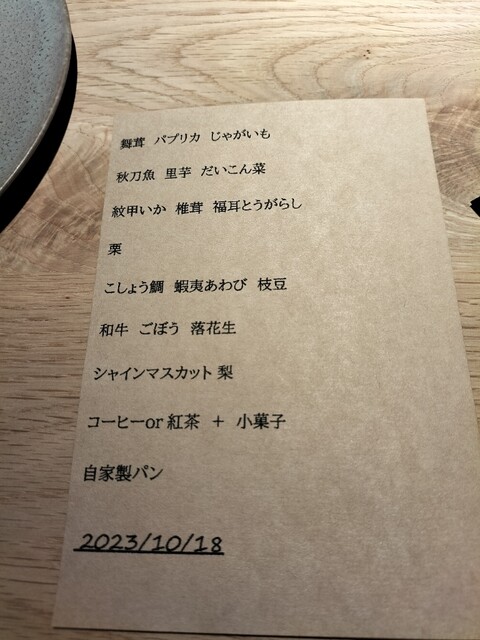 舞茸 パプリカ じゃがいも
秋刀魚 里芋 だいこん菜
紋甲いか 椎茸 福耳とうがらし
栗
こしょう鯛 蝦夷あわび 枝豆
和牛 ごぼう 落花生
シャインマスカット 梨
コーヒーor 紅茶 + 小菓子
自家製パン
2023/10/18